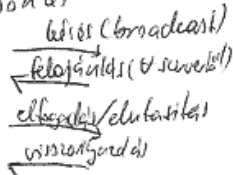 kérés (broadcast)
felajánlás (∀ servertől)
elfogadás/elutasítás
visszaigazolás